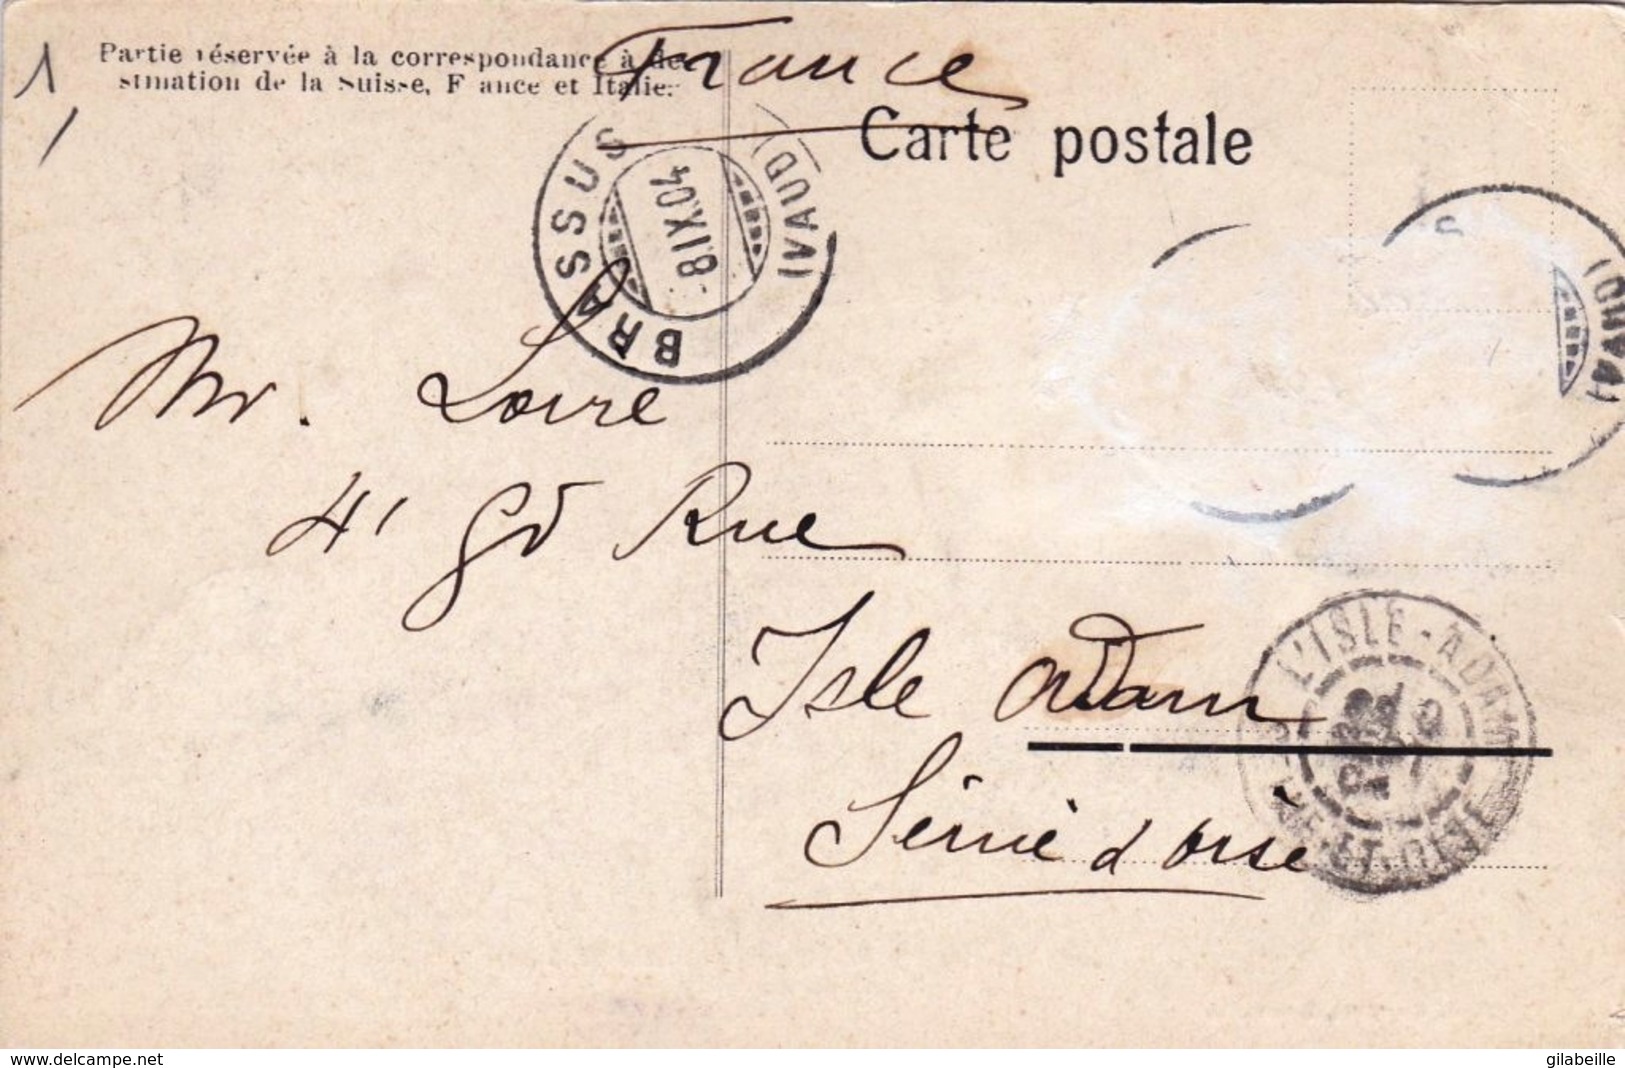 1
Partie réservée à la correspondance à de
stination de la Suisse, France et Italie.
France
Carte postale
BRASSUS
(VAUD)
-8.IX.04
(VAUD)
Mr. Loire
41 Gd Rue
Isle Adam
Seine d'Oise
L'ISLE-ADAM
SEINE-ET-OISE
www.delcampe.net
gilabeille